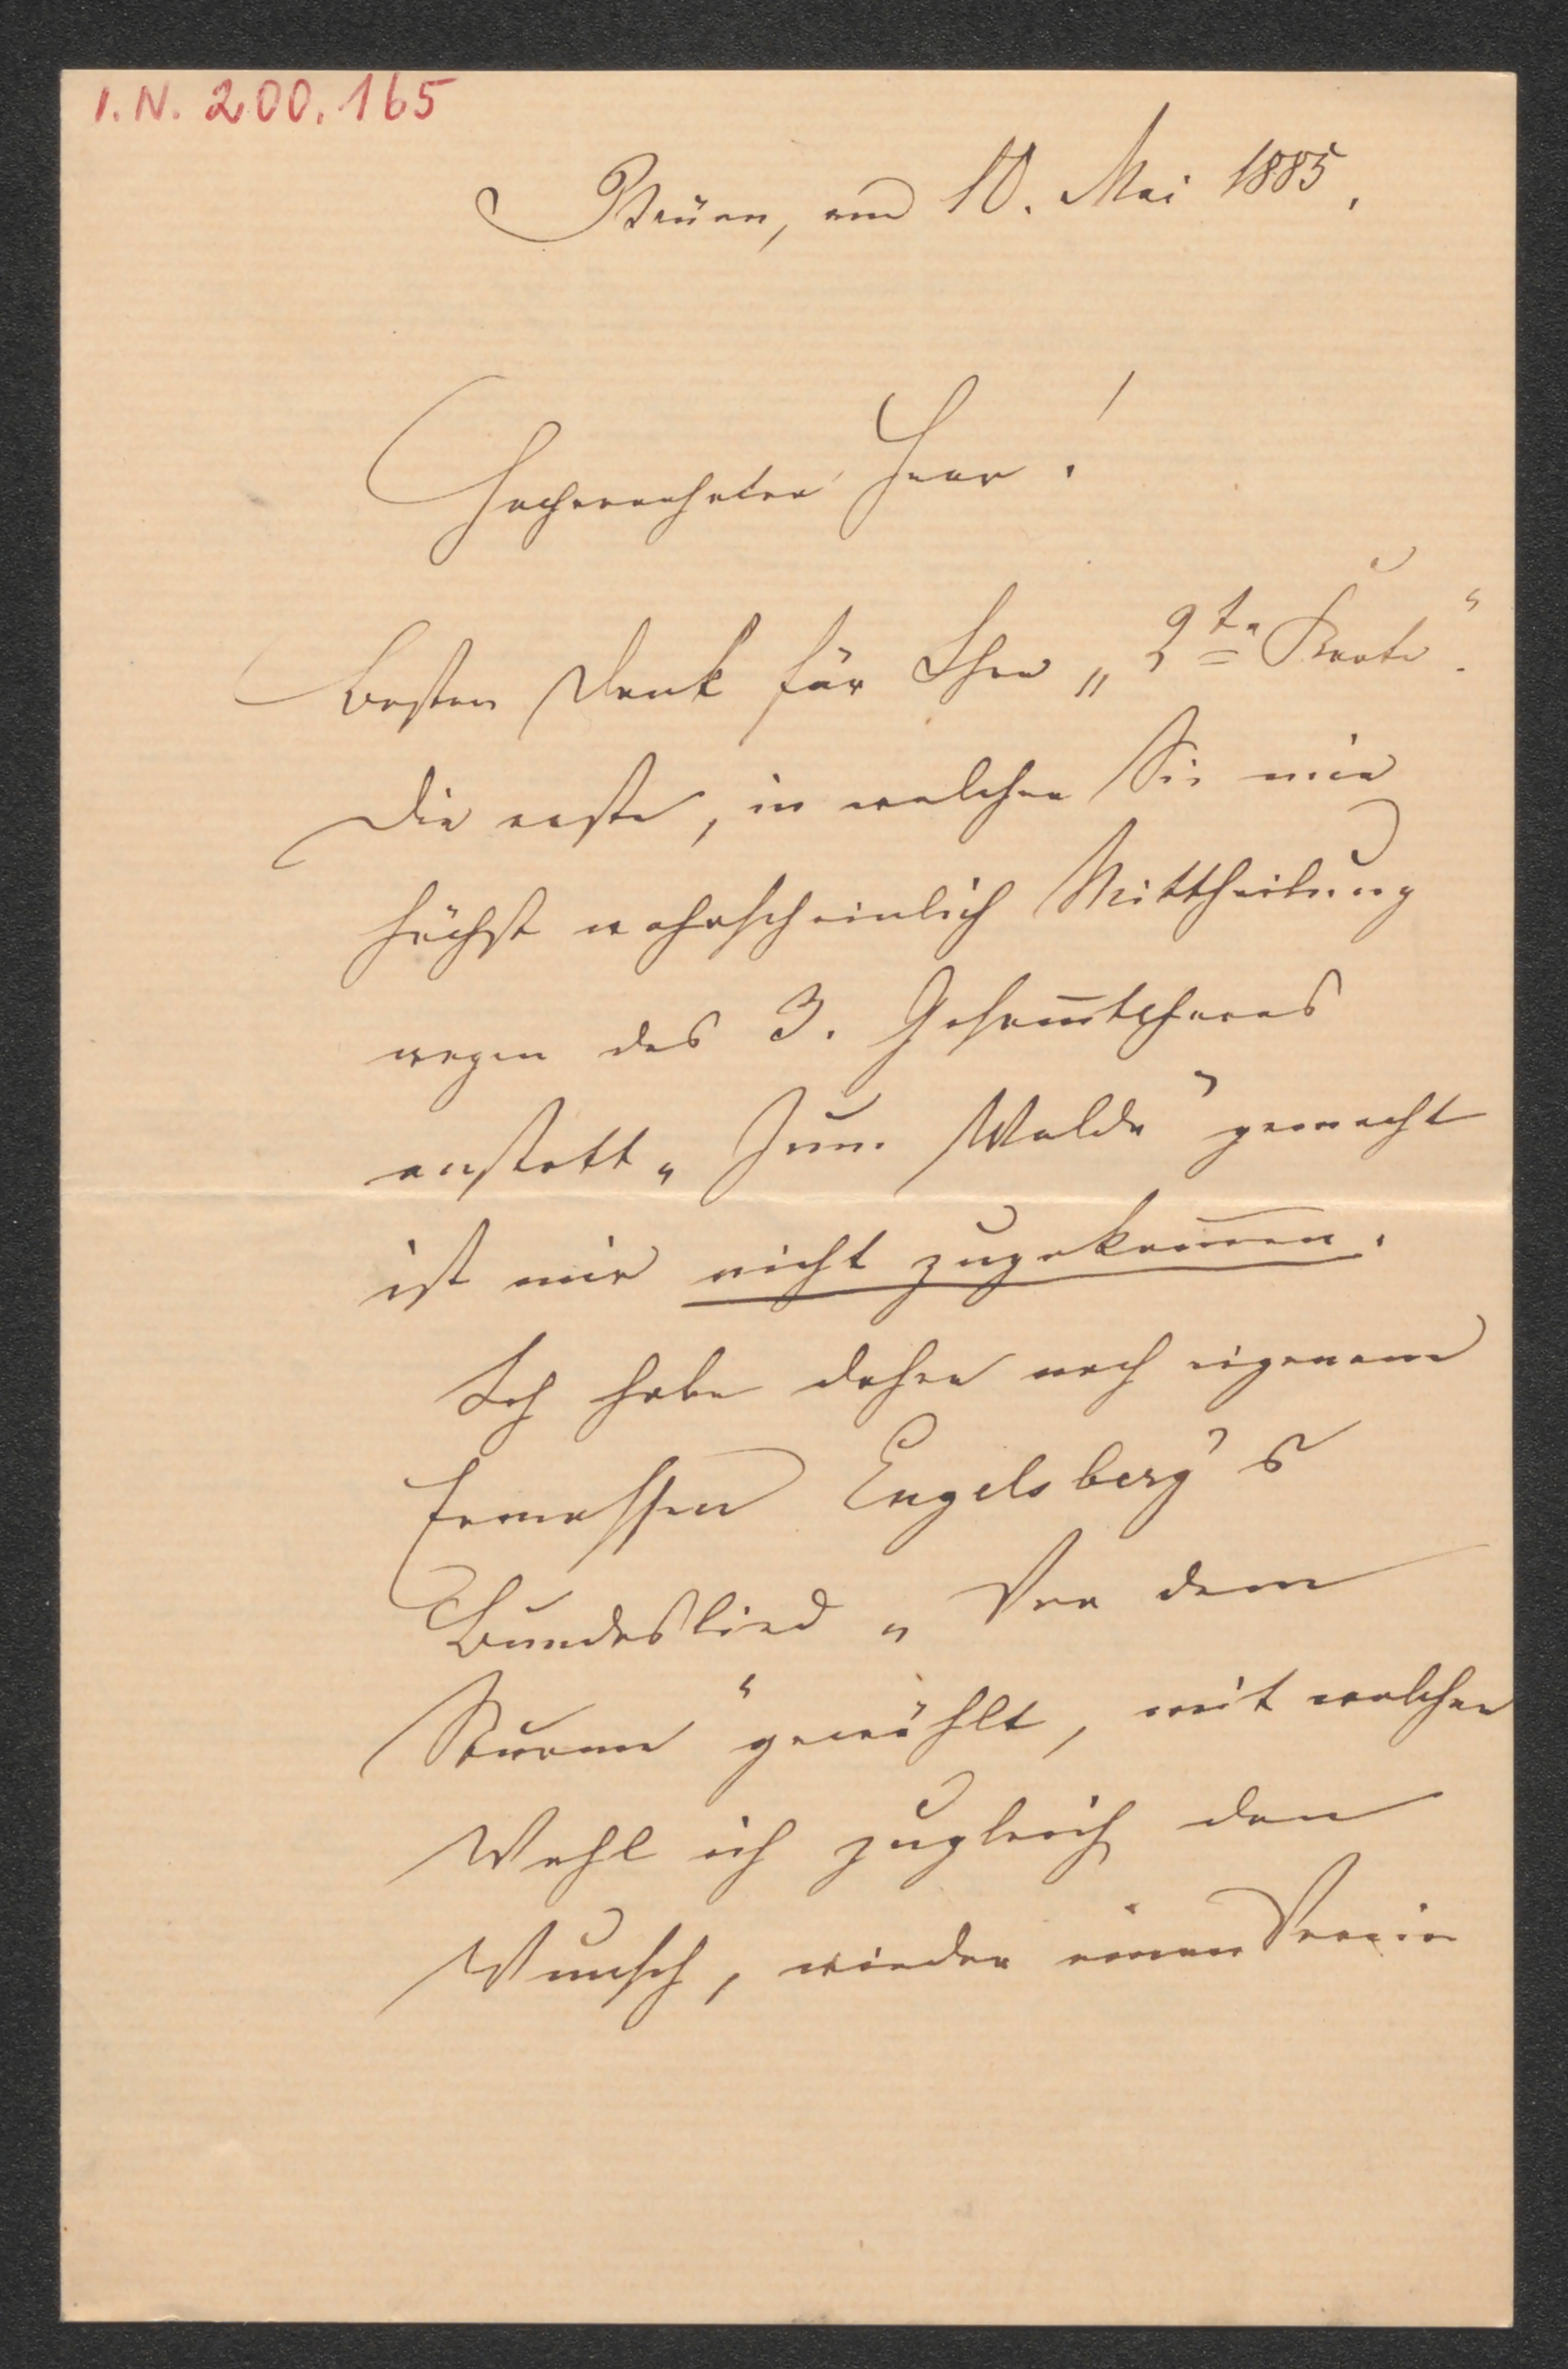 I.N. 200.165
Brünn, am 10. Mai 1885.
Hochverehrter Herr!
Besten Dank für Ihre „2te Karte“.
Die erste, in welcher Sie mir
höchst wahrscheinlich Mittheilung
wegen des 3. Gesam̅tchores
anstatt „Zum Walde“ gemacht
ist mir nicht zugekom̅en.
Ich habe daher nach eigenem
Ermessen Engelsberg's
Bundeslied „Vor dem
Sturme“ gewählt, mit welcher
Wahl ich zugleich den
Wunsch, wieder einen Verein